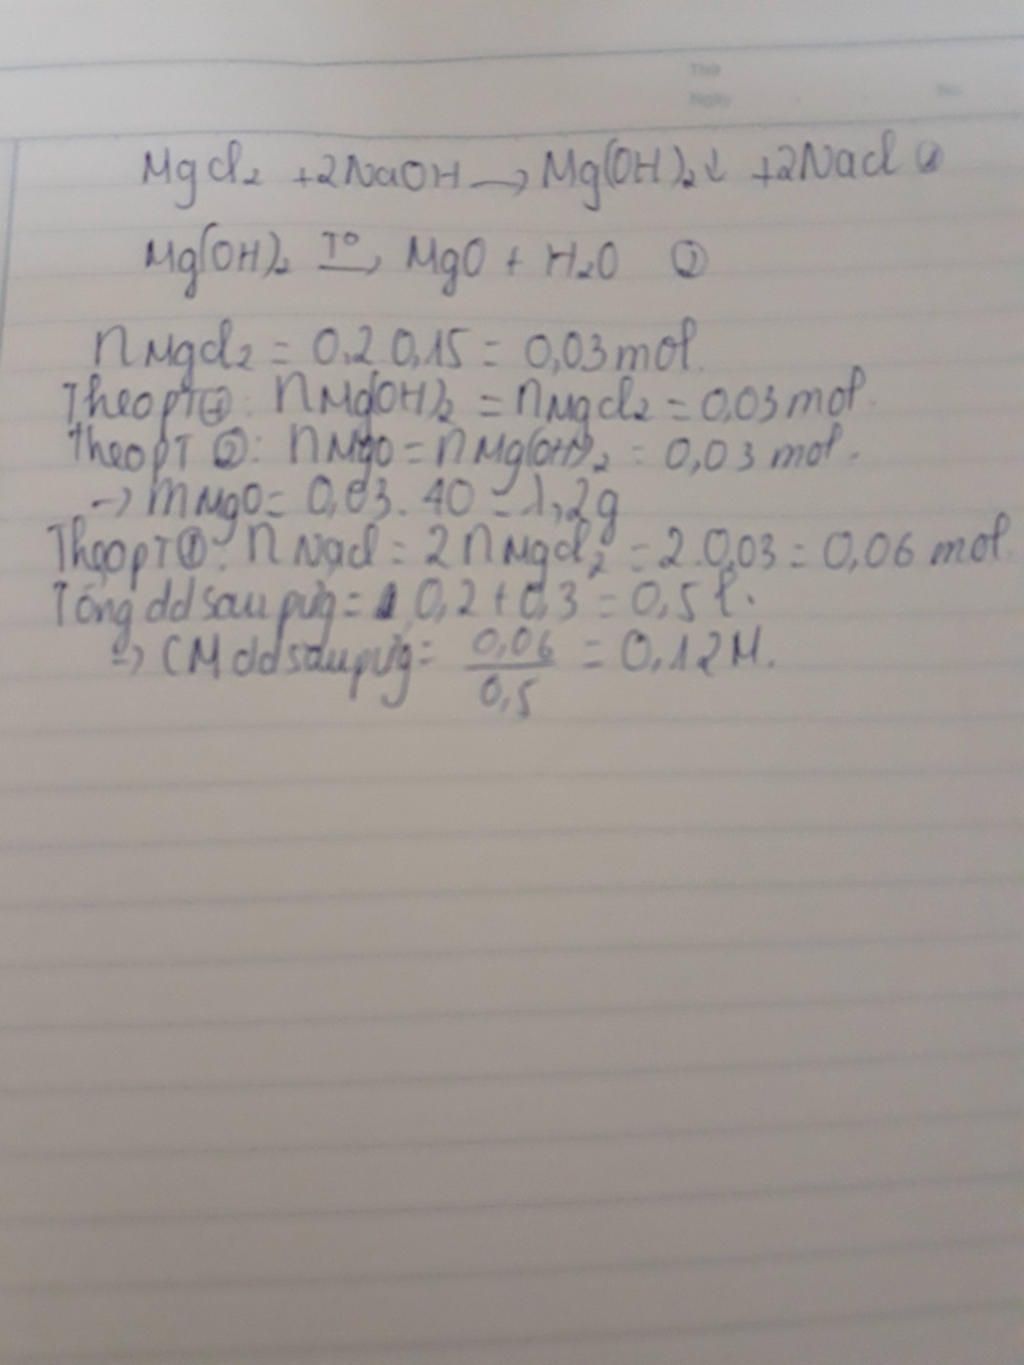 Thứ
Ngày
No.
MgCl₂ + 2NaOH → Mg(OH)₂↓ + 2NaCl ①
Mg(OH)₂ T° → MgO + H₂O ②
nMgCl₂ = 0,2.0,15 = 0,03 mol.
Theo PT ①: nMg(OH)₂ = nMgCl₂ = 0,03 mol.
Theo PT ②: nMgO = nMg(OH)₂ = 0,03 mol.
→ mMgO = 0,03.40 = 1,2g
Theo PT ①: nNaCl = 2nMgCl₂ = 2.0,03 = 0,06 mol.
Tổng dd sau pứg = 0,2 + 0,3 = 0,5 l.
=> CM dd sau pứg = 0,06 / 0,5 = 0,12M.